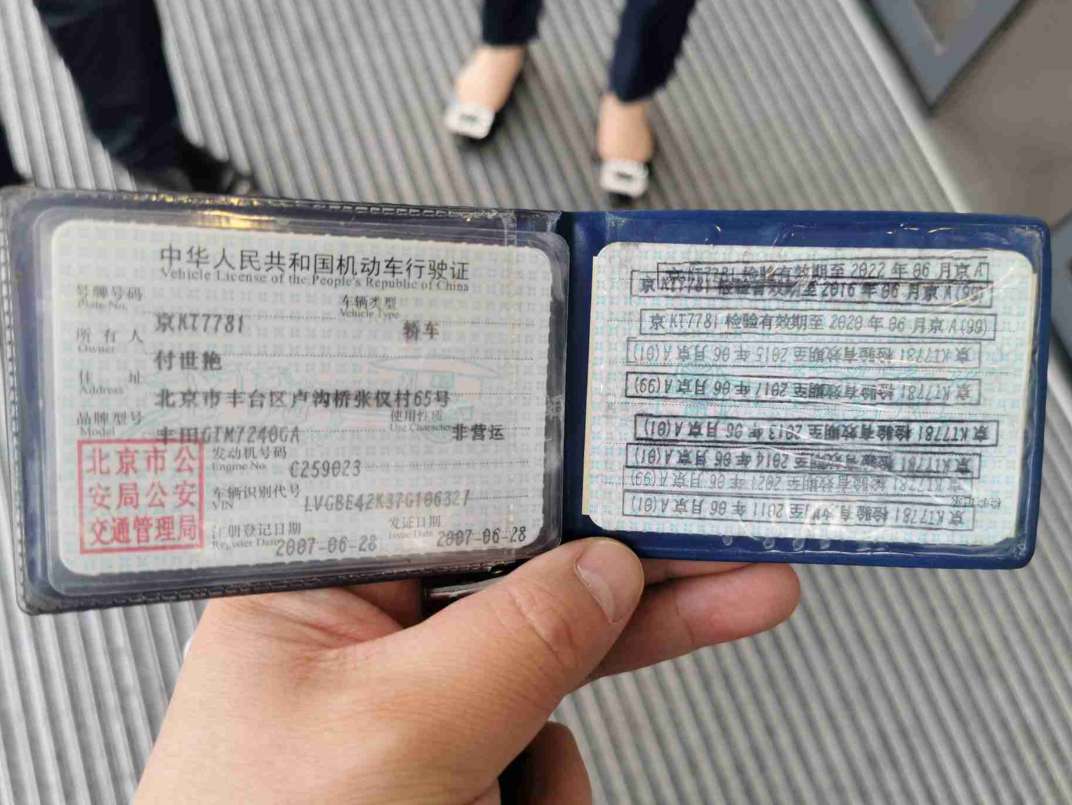 中华人民共和国机动车行驶证
Vehicle License of the People's Republic of China
号牌号码 京KT7781 车辆类型 轿车
Plate No. Vehicle Type
所有人 付世艳
Owner
住址 北京市丰台区卢沟桥张仪村65号
Address
品牌型号 丰田GTM7240GA 使用性质 非营运
Model Use Character
北京市公
安局公安
交通管理局
发动机号码 C259023
Engine No.
车辆识别代号
VIN
注册登记日期 2007-06-28 发证日期 2007-06-28
Register Date Issue Date
京KT7781 检验有效期至 2022 年 06 月京A
京KT7781 检验有效期至 2016 年 06 月京A(99)
京KT7781 检验有效期至 2020 年 06 月京A(99)
京KT7781 检验有效期至 2015 年 06 月京A(01)
京KT7781 检验有效期至 2017 年 06 月京A(99)
京KT7781 检验有效期至 2013 年 06 月京A(01)
京KT7781 检验有效期至 2014 年 06 月京A(01)
京KT7781 检验有效期至 2021 年 06 月京A(99)
京KT7781 检验有效期至 2011 年 06 月京A(01)